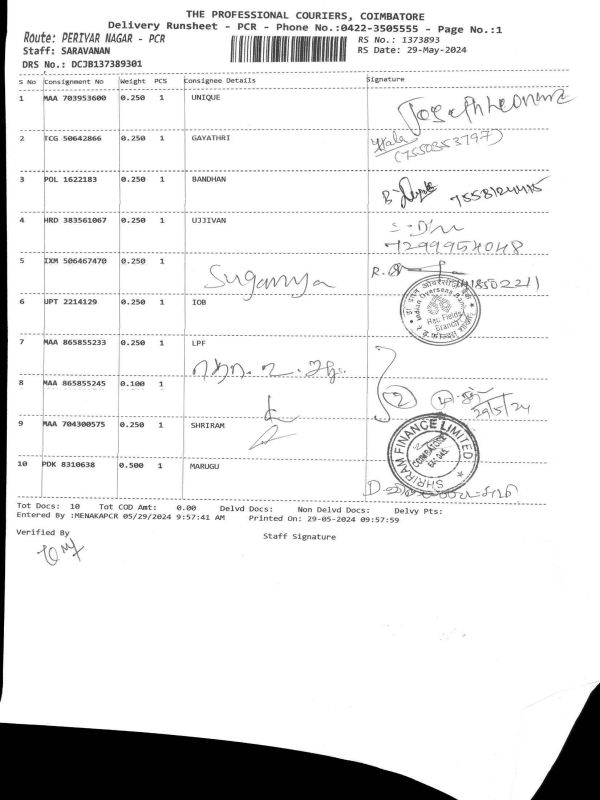 THE PROFESSIONAL COURIERS, COIMBATORE
Delivery Runsheet - PCR - Phone No.:0422-3505555 - Page No.:1
Route: PERIYAR NAGAR - PCR
RS No.: 1373893
Staff: SARAVANAN
RS Date: 29-May-2024
DRS No.: DCJB137389301
S No Consignment No Weight PCS Consignee Details Signature
1 MAA 703953600 0.250 1 UNIQUE
2 TCG 50642866 0.250 1 GAYATHRI
(7550353797)
3 POL 1622183 0.250 1 BANDHAN
4 HRD 383561067 0.250 1 UJJIVAN
7299954048
5 IXM 506467470 0.250 1
Suganya
6 UPT 2214129 0.250 1 IOB
Indian Overseas Bank
Branch
7 MAA 865855233 0.250 1 LPF
8 MAA 865855245 0.100 1
2
29/5/24
9 MAA 704300575 0.250 1 SHRIRAM
SHRIRAM FINANCE LIMITED
COIMBATORE
10 PDK 8310638 0.500 1 MARUGU
Tot Docs: 10 Tot COD Amt: 0.00 Delvd Docs: Non Delvd Docs: Delvy Pts:
Entered By :MENAKAPCR 05/29/2024 9:57:41 AM Printed On: 29-05-2024 09:57:59
Verified By
Staff Signature